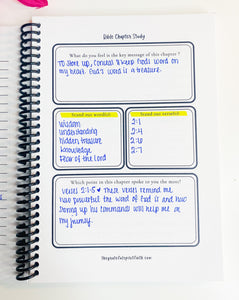 Bible Chapter Study
What do you feel is the key message of this chapter ?
To store up, conceal & keep God's word on
my heart. God's word is a treasure.
Stand out word(s)
Stand out verse(s)
wisdom
understanding
hidden treasure
knowledge
Fear of the Lord
2:1
2:4
2:6
2:7
Which point in this chapter spoke to you the most?
verses 2:1-5 These verses remind me
how powerful the word of God is and how
storing up his commands will help me on
my journey.